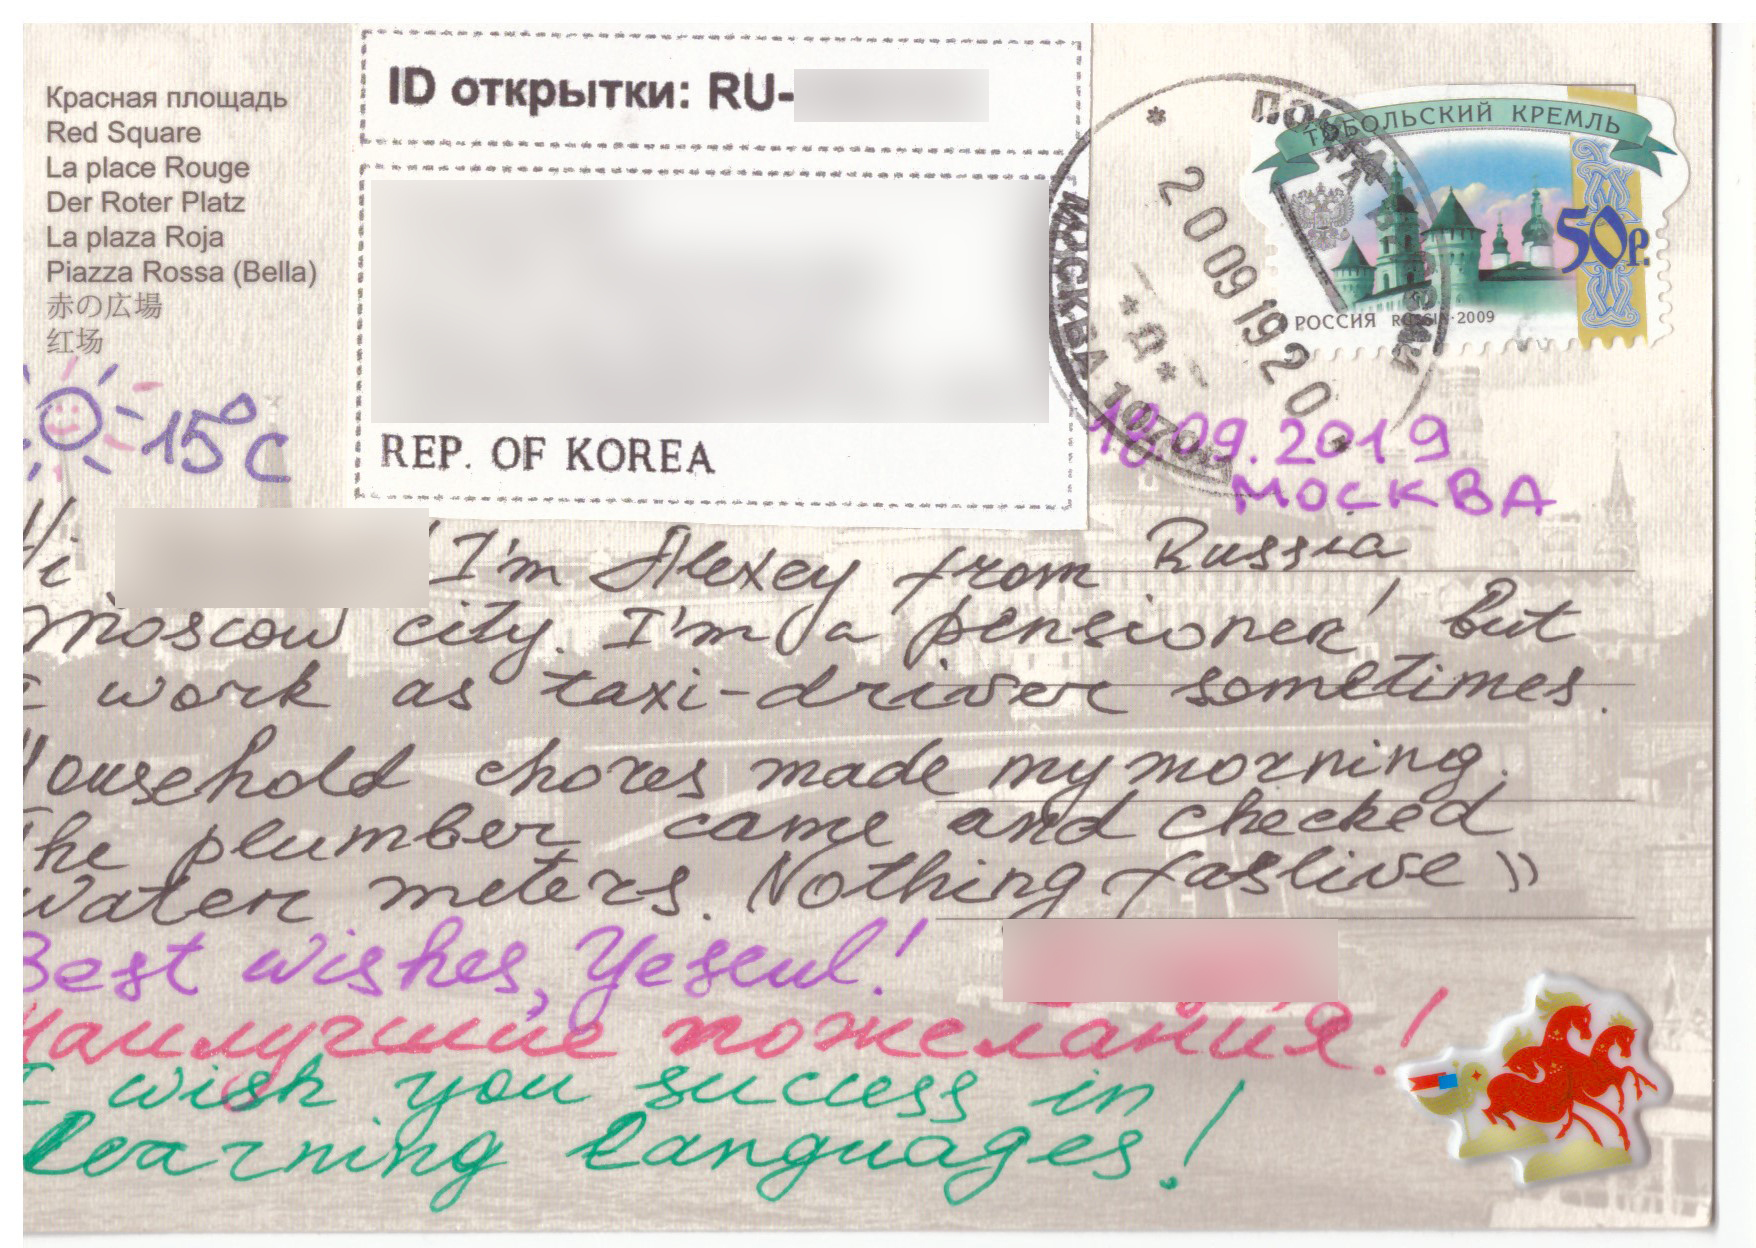 Красная площадь
Red Square
La place Rouge
Der Roter Platz
La plaza Roja
Piazza Rossa (Bella)
赤の広場
红场
ID открытки: RU-
REP. OF KOREA
ТОБОЛЬСКИЙ КРЕМЛЬ
50р.
РОССИЯ RUSSIA·2009
ПОЧТА РОССИИ
МОСКВА
2009 1920
*Д*
15°C
18.09.2019
МОСКВА
Hi I'm Alexey from Russia
Moscow city. I'm a pensioner but
I work as taxi-driver sometimes.
Household chores made my morning.
The plumber came and checked
water meters. Nothing faslive ))
Best wishes, Yeseul!
Наилучшие пожелания!
I wish you success in
learning languages!